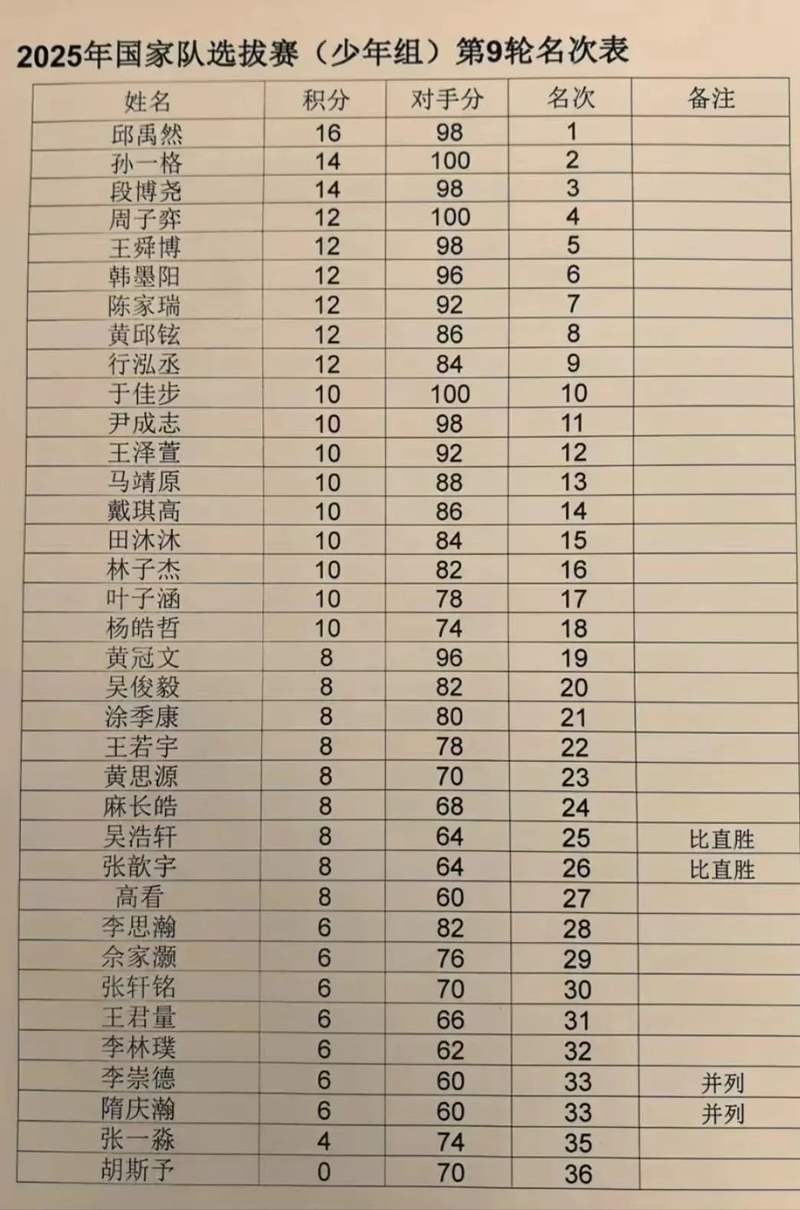 2025年国家队选拔赛（少年组）第9轮名次表
姓名 积分 对手分 名次 备注
邱禹然 16 98 1
孙一格 14 100 2
段博尧 14 98 3
周子弈 12 100 4
王舜博 12 98 5
韩墨阳 12 96 6
陈家瑞 12 92 7
黄邱铉 12 86 8
行泓丞 12 84 9
于佳步 10 100 10
尹成志 10 98 11
王泽萱 10 92 12
马靖原 10 88 13
戴琪高 10 86 14
田沐沐 10 84 15
林子杰 10 82 16
叶子涵 10 78 17
杨皓哲 10 74 18
黄冠文 8 96 19
吴俊毅 8 82 20
涂季康 8 80 21
王若宇 8 78 22
黄思源 8 70 23
麻长皓 8 68 24
吴浩轩 8 64 25 比直胜
张歆宇 8 64 26 比直胜
高看 8 60 27
李思瀚 6 82 28
佘家灏 6 76 29
张轩铭 6 70 30
王君量 6 66 31
李林璞 6 62 32
李崇德 6 60 33 并列
隋庆瀚 6 60 33 并列
张一淼 4 74 35
胡斯予 0 70 36